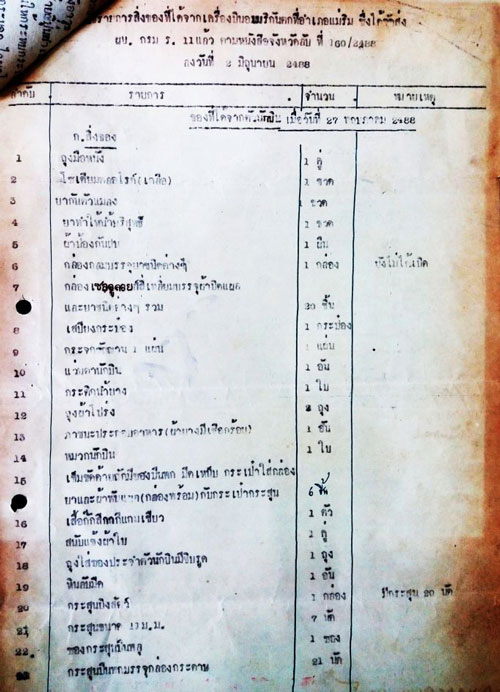 รายการสิ่งของที่ได้จากเครื่องบินอเมริกันตกที่อำเภอแม่ริม ซึ่งได้จัดส่ง
ผบ. กรม ร. 11 แล้ว ตามหนังสือจังหวัดลับ ที่ 160/2488
ลงวันที่ 2 มิถุนายน 2488
ลำดับ รายการ จำนวน หมายเหตุ
ของที่ได้จากตัวนักบิน เมื่อวันที่ 27 พฤษภาคม 2488
ก. สิ่งของ
1 ถุงมือหนัง 1 คู่
2 โซเดียมคลอไรด์(เกลือ) 1 ขวด
3 ยากันตัวแมลง 1 ขวด
4 ยาทำให้น้ำบริสุทธิ์ 1 ขวด
5 ผ้าป้องกันฝน 1 ผืน
6 กล่องกลมบรรจุยาชนิดต่างๆ 1 กล่อง ยังไม่ได้เปิด
7 กล่อง สี่เหลี่ยมบรรจุผ้าปิดแผล
และยาชนิดต่างๆ รวม 20 ชิ้น
8 เสบียงกระป๋อง 1 กระป๋อง
9 กระจก 1 แผ่น 1 แผ่น
10 แว่นตานักบิน 1 อัน
11 กระติกน้ำยาง 1 ใบ
12 ถุงผ้าโปร่ง 2 ถุง
13 ภาชนะประกอบอาหาร 1 อัน
14 หมวกนักบิน 1 ใบ
15 เข็มขัดด้ายถัก มีดเหน็บ กระเป๋าใส่กล่อง
ยาและผ้าพันแผล(กล่องพร้อม)กับกระเป๋ากระสุน 6 ชิ้น
16 เสื้อกั๊กสีกากีแกมเขียว 1 ตัว
17 สนับแข้งผ้าใบ 1 คู่
18 ถุงใส่ของประจำตัวนักบินมีซิบรูด 1 ถุง
19 หินลับมีด 1 อัน
20 กระสุนยิงสัตว์ 1 กล่อง มีกระสุน 20 นัด
21 กระสุนขนาด 11 ม.ม. 7 นัด
22 ซองกระสุนปืนพลุ 1 ซอง
23 กระสุนปืนพกบรรจุกล่องกระดาษ 21 นัด